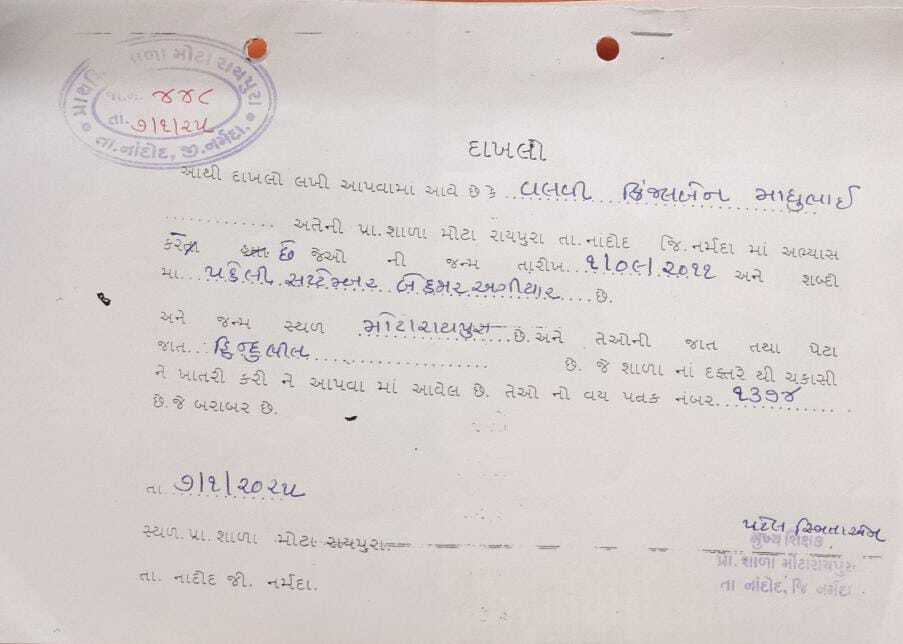 શાળા મોટા રાયપુરા
જા.નં. ૪૪૮
તા. ૭/૧/૨૫
તા.નાંદોદ, જી.નર્મદા.
દાખલો
આથી દાખલો લખી આપવામાં આવે છે કે વલવી કિંજલબેન માધુભાઈ
અતેની પ્રા.શાળા મોટા રાયપુરા તા.નાદોદ જિ.નર્મદા માં અભ્યાસ
છે જેઓ ની જન્મ તારીખ ૧/૦૯/૨૦૧૧ અને શબ્દી
મા પહેલી સપ્ટેમ્બર બે હજાર અગીયાર છે.
અને જન્મ સ્થળ મોટારાયપુરા છે.અને તેઓની જાત તથા પેટા
જાત હિન્દુ ભીલ છે. જે શાળા નાં દફતરે થી ચકાસી
ને ખાતરી કરી ને આપવા માં આવેલ છે. તેઓ નો વય પત્રક નંબર ૧૩૭૪
છે.જે બરાબર છે.
તા ૭/૧/૨૦૨૫
સ્થળ.પ્રા.શાળા મોટા રાયપુરા
તા. નાદોદ જી. નર્મદા.
પટેલ સ્મિતા એમ
મુખ્ય શિક્ષક
પ્રા. શાળા મોટારાયપુરા
તા નાંદોદ, જિ નર્મદા